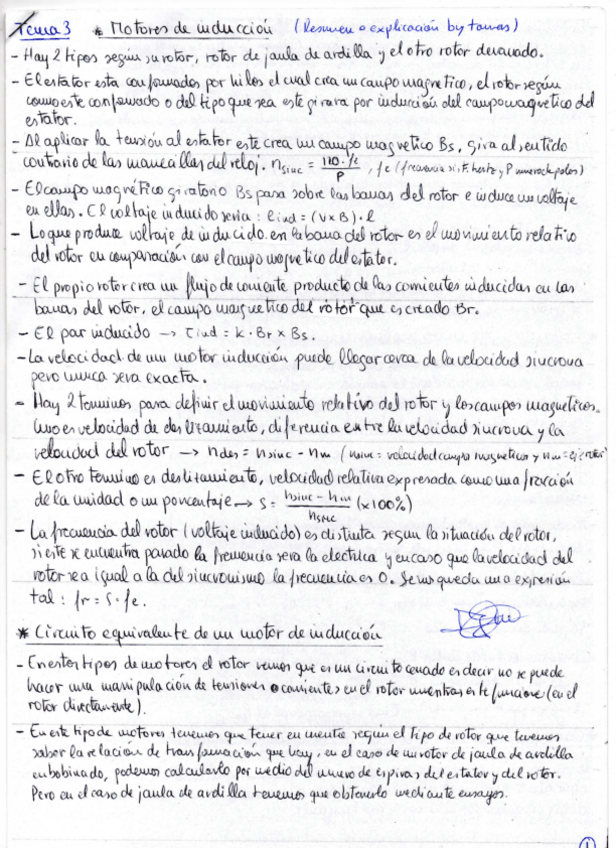 Tema 3 * Motores de inducción (Resumen o explicación by tomas)
- Hay 2 tipos según su rotor, rotor de jaula de ardilla y el otro rotor devanado.
- El estator esta conformados por hilos el cual crea un campo magnetico, el rotor según
como este conformado o del tipo que sea este girara por inducción del campo magnetico del
estator.
- Al aplicar la tensión al estator este crea un campo magnetico Bs, gira al sentido
contrario de las manecillas del reloj. nsinc = 120·fe / P , fe (frecuencia sist. hertz y P numero de polos)
- El campo magnético giratorio Bs pasa sobre las barras del rotor e induce un voltaje
en ellas. El voltaje inducido seria: eind = (v x B)·l
- Lo que produce voltaje de inducido en la barra del rotor es el movimiento relativo
del rotor en comparación con el campo magnetico del estator.
- El propio rotor crea un flujo de corriente producto de las corrientes inducidas en las
barras del rotor, el campo magnetico del rotor que es creado Br.
- El par inducido → τind = k·Br x Bs.
- La velocidad de un motor inducción puede llegar cerca de la velocidad sincrona
pero nunca sera exacta.
- Hay 2 terminos para definir el movimiento relativo del rotor y los campos magneticos.
Uno es velocidad de deslizamiento, diferencia entre la velocidad sincrona y la
velocidad del rotor → ndes = nsinc - nm (nsinc = velocidad campo magneticos y nm = eje rotor)
- El otro termino es deslizamiento, velocidad relativa expresada como una fracción
de la unidad o un porcentaje → S = nsinc - nm / nsinc (x100%)
- La frecuencia del rotor (voltaje inducido) es distinta segun la situación del rotor,
si este se encuentra parado la frecuencia sera la electrica y en caso que la velocidad del
rotor sea igual a la del sincronismo la frecuencia es 0. Se nos queda una expresión
tal: fr = S·fe.
* Circuito equivalente de un motor de inducción
- En estos tipos de motores el rotor vemos que es un circuito cerrado es decir no se puede
hacer una manipulación de tensiones o corrientes en el rotor mientras este funcione (en el
rotor directamente).
- En este tipo de motores tenemos que tener en cuenta según el tipo de rotor que tenemos
saber la relación de transformación que hay, en el caso de un rotor de jaula de ardilla
en bobinado, podemos calcularlo por medio del numero de espiras del estator y del rotor.
Pero en el caso de jaula de ardilla tenemos que obtenerlo mediante ensayos.
1